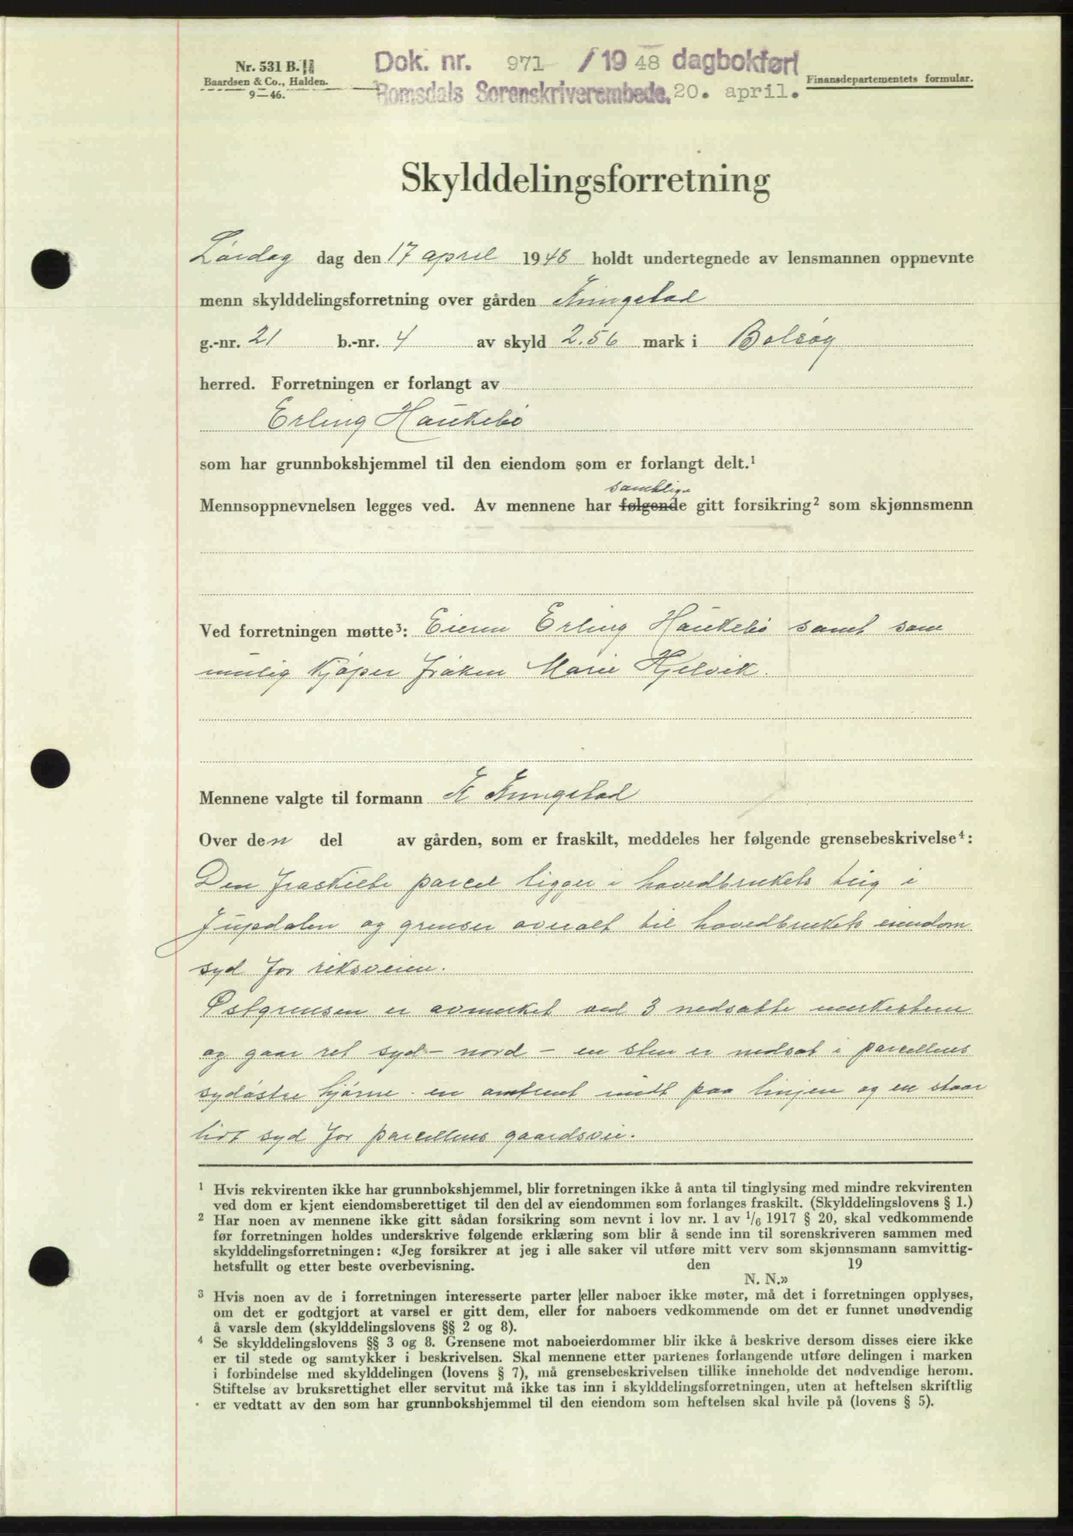 Nr. 531 B.
Baardsen & Co., Halden.
9—46.
Dok. nr. 971 / 1948 dagbokført
Romsdals Sorenskriverembede. 20. april.
Finansdepartementets formular.
Skylddelingsforretning
Lördag dag den 17 april 1948 holdt undertegnede av lensmannen oppnevnte
menn skylddelingsforretning over gården Kringstad
g.-nr. 21 b.-nr. 4 av skyld 2.56 mark i Bolsøy
herred. Forretningen er forlangt av
Erling Haukebö
som har grunnbokshjemmel til den eiendom som er forlangt delt.¹
samtlige
Mennsoppnevnelsen legges ved. Av mennene har følgende gitt forsikring² som skjønnsmenn
Ved forretningen møtte³: Eieren Erling Haukebö samt som
mulig kjöper fröken Marie Hjelvik.
Mennene valgte til formann K Kringstad
Over den del av gården, som er fraskilt, meddeles her følgende grensebeskrivelse⁴:
Den fraskilte parcel ligger i hovedbrukets teig i
Jupdalen og grenser overalt til hovedbrukets eiendom
syd for riksveien.
Østgrensen er avmerket ved 3 nedsatte merkestene
og gaar ret syd - nord - en sten er nedsat i parcellens
sydöstre hjörne - en omtrent midt paa linjen og en staar
lidt syd for parcellens gaardsvei.
¹ Hvis rekvirenten ikke har grunnbokshjemmel, blir forretningen ikke å anta til tinglysing med mindre rekvirenten
ved dom er kjent eiendomsberettiget til den del av eiendommen som forlanges fraskilt. (Skylddelingslovens § 1.)
² Har noen av mennene ikke gitt sådan forsikring som nevnt i lov nr. 1 av 1/6 1917 § 20, skal vedkommende
før forretningen holdes underskrive følgende erklæring som blir å sende inn til sorenskriveren sammen med
skylddelingsforretningen: «Jeg forsikrer at jeg i alle saker vil utføre mitt verv som skjønnsmann samvittig-
hetsfullt og etter beste overbevisning. den 19
N. N.»
³ Hvis noen av de i forretningen interesserte parter eller naboer ikke møter, må det i forretningen opplyses,
om det er godtgjort at varsel er gitt dem, eller for naboers vedkommende om det er funnet unødvendig
å varsle dem (skylddelingslovens §§ 2 og 8).
⁴ Se skylddelingslovens §§ 3 og 8. Grensene mot naboeierdommer blir ikke å beskrive dersom disses eiere ikke
er til stede og samtykker i beskrivelsen. Skal mennene etter partenes forlangende utføre delingen i marken
i forbindelse med skylddelingen (lovens § 7), må grensebeskrivelsen tillike inneholde det nødvendige herom.
Stiftelse av bruksrettighet eller servitut må ikke tas inn i skylddelingsforretningen, uten at heftelsen skriftlig
er vedtatt av den som har grunnbokshjemmel til den eiendom som heftelsen skal hvile på (lovens § 5).